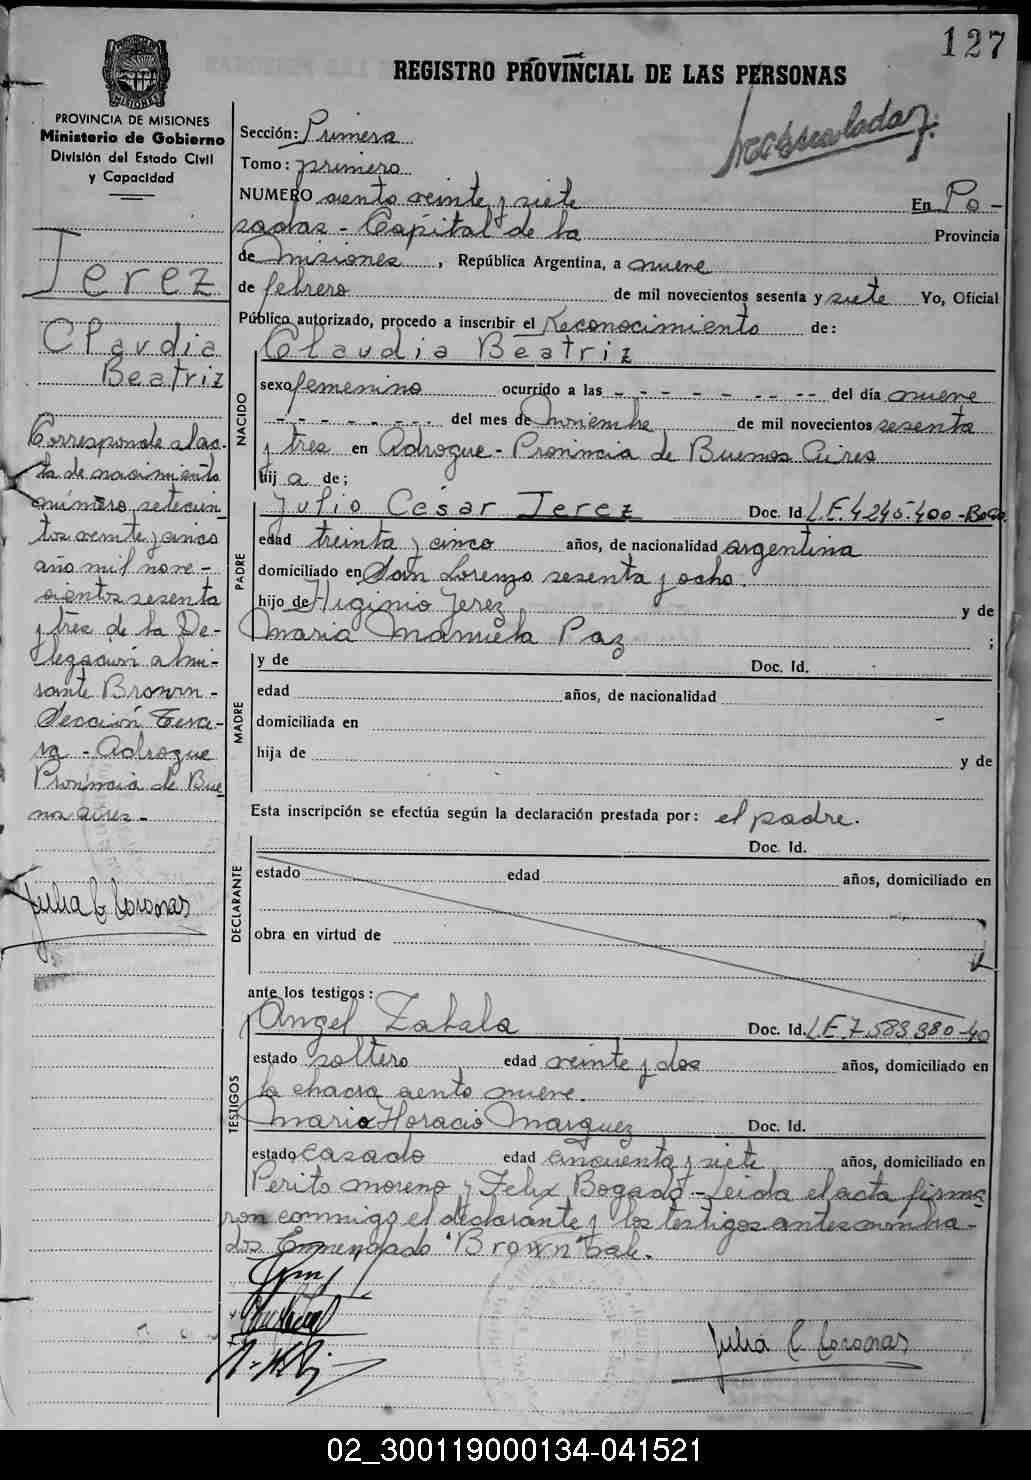 127
REGISTRO PROVINCIAL DE LAS PERSONAS
MISIONES
PROVINCIA DE MISIONES
Ministerio de Gobierno
División del Estado Civil
y Capacidad
Jerez
Claudia
Beatriz
Corresponde al ac-
ta de nacimiento
número setecien
tos veinte y cinco
año mil nove-
cientos sesenta
y tres de la De-
legación almi-
rante Brown -
Sección Terce-
ra - Adrogue
Provincia de Bue
nos aires -
Julia C Coronas
Sección: Primera
Tomo: primero
NUMERO ciento veinte y siete En Po-
sadas - Capital de la Provincia
de Misiones, República Argentina, a nueve
de febrero de mil novecientos sesenta y siete Yo, Oficial
Público autorizado, procedo a inscribir el Reconocimiento de:
NACIDO
Claudia Beatriz
sexo femenino ocurrido a las - - - - - - - - del día nueve
- - - - - - - - del mes de Noviembre de mil novecientos sesenta
y tres en Adrogue - Provincia de Buenos Aires
Hij a de;
PADRE
Julio César Jerez Doc. Id. L.E. 4.240.400-
edad treinta y cinco años, de nacionalidad argentina
domiciliado en San Lorenzo sesenta y ocho.
hijo de Higinio Jerez y de
Maria Manuela Paz ;
MADRE
y de Doc. Id.
edad años, de nacionalidad
domiciliada en -
hija de y de
Esta inscripción se efectúa según la declaración prestada por: el padre.
DECLARANTE
Doc. Id.
estado edad años, domiciliado en
obra en virtud de
ante los testigos:
TESTIGOS
Angel Zabala Doc. Id. L.E. 7.583.980-40
estado soltero edad veinte y dos años, domiciliado en
la chacra ciento nueve.
Mario Horacio Marquez Doc. Id.
estado casado edad cincuenta y siete años, domiciliado en
Perito moreno y Felix Bogado - Leida el acta firma-
ron conmigo el declarante y los testigos antes nombra-
dos Enmendado "Brown" vale.
Julia C Coronas
02_300119000134-041521